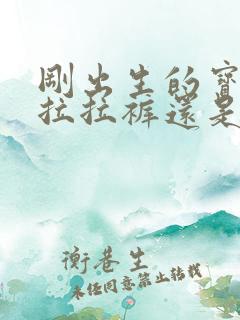 剛出生的寶
拉拉褲還是
衡巷生
未經同意禁止轉載